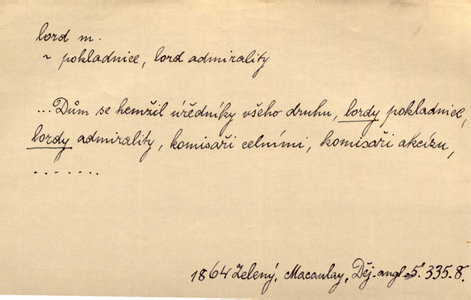 lord m.
~ pokladnice, lord admirality
...Dům se hemžil úředníky všeho druhu, lordy pokladnice,
lordy admirality, komisaři celními, komisaři akcízu,
.......
1864 Zelený, Macaulay, Děj. angl. 5. 335. 8.